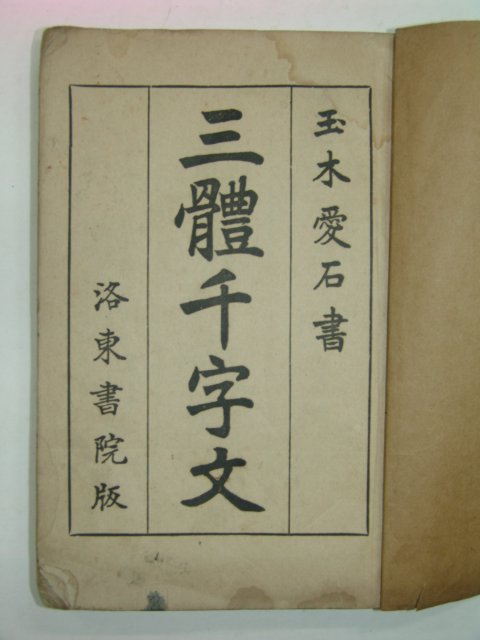 玉木愛石書
三體千字文
洛東書院版